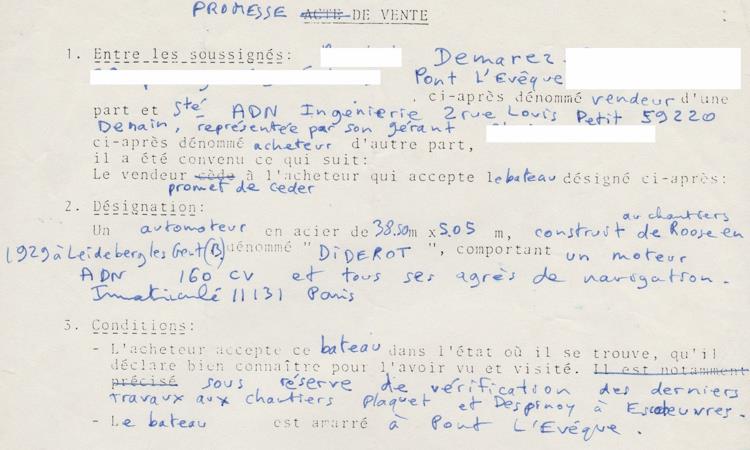 PROMESSE ACTE DE VENTE
1. Entre les soussignés: Demarez
Pont L'Evêque
, ci-après dénommé vendeur d'une
part et Sté ADN Ingénierie 2 rue Louis Petit 59220
Denain, représentée par son gérant
ci-après dénommé acheteur d'autre part,
il a été convenu ce qui suit:
Le vendeur cède à l'acheteur qui accepte le bateau désigné ci-après:
promet de ceder
2. Désignation:
au chantiers
Un automoteur en acier de 38.50m x 5.05 m, construit de Roose en
1929 à Leideberg les Gent (B) dénommé " DIDEROT ", comportant un moteur
ADN 160 CV et tous ses agrès de navigation.
Immatriculé 11131 Paris
3. Conditions:
- L'acheteur accepte ce bateau dans l'état où il se trouve, qu'il
déclare bien connaître pour l'avoir vu et visité. Il est notamment
précisé sous réserve de vérification des derniers
travaux aux chantiers Plaquet et Despinoy à Escaudoeuvres.
- Le bateau est amarré à Pont L'Evêque.